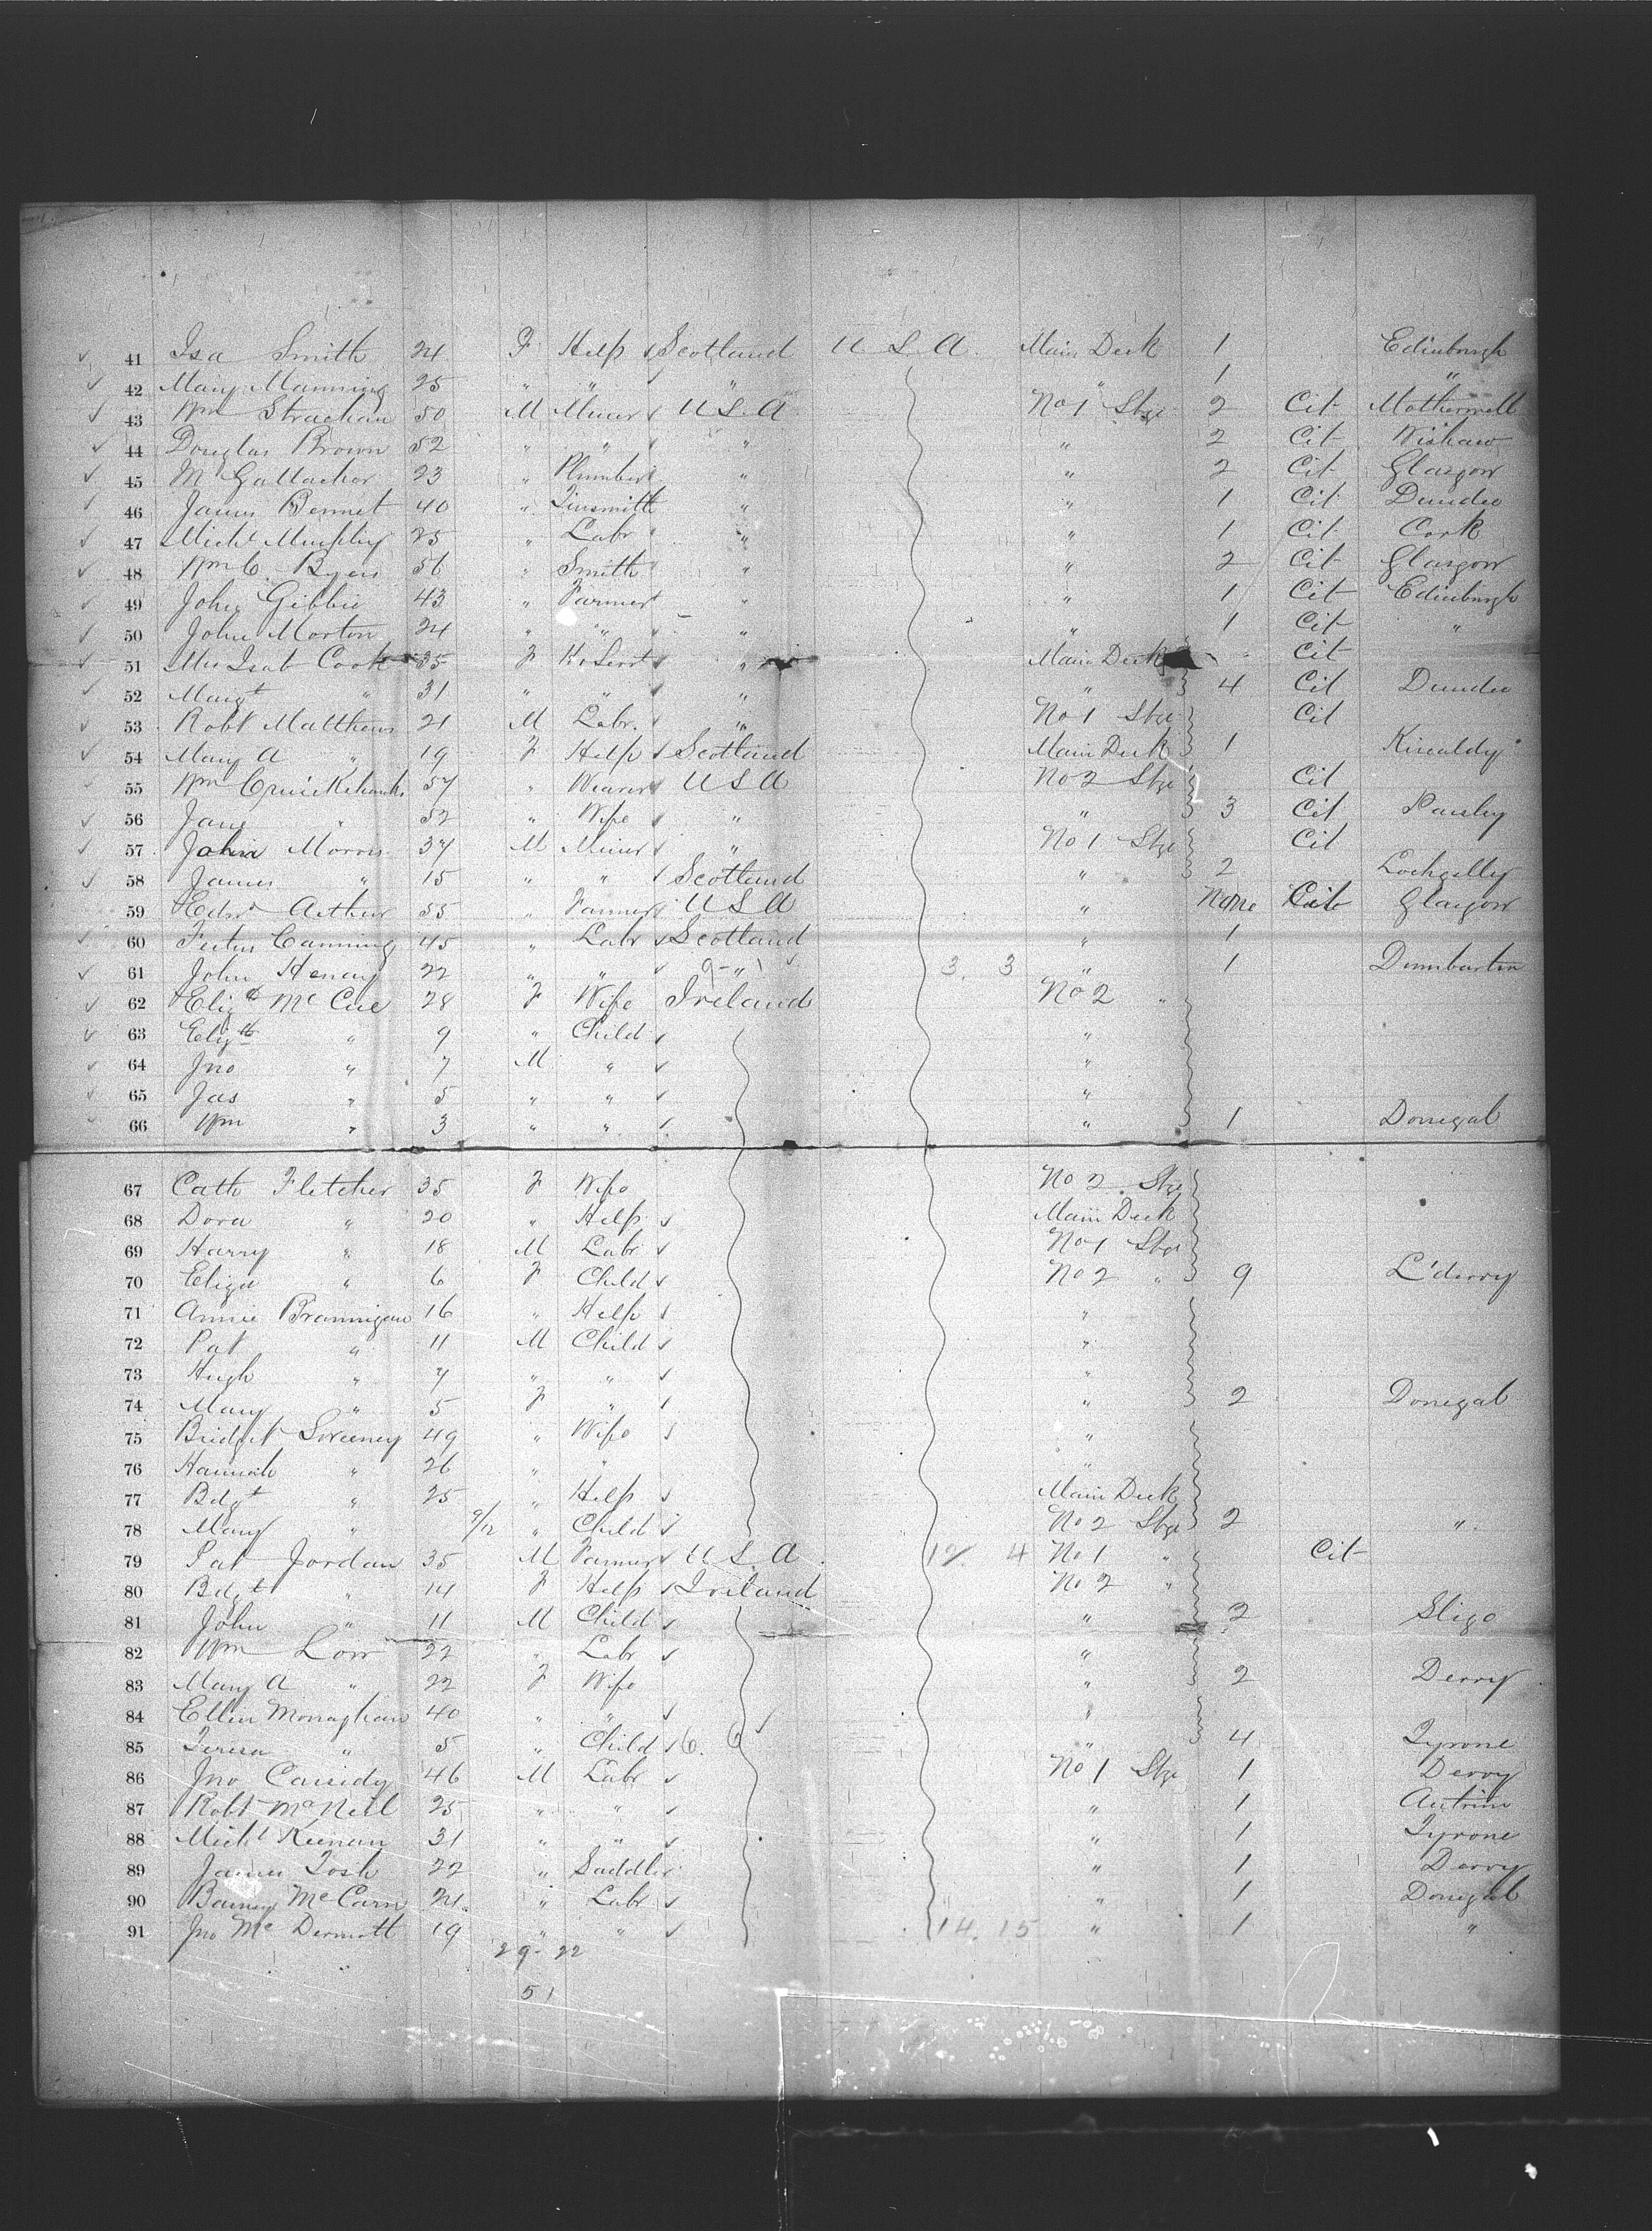 41 Isa Smith 24 F Help Scotland U S A Main Deck 1 Edinburgh
42 Mary Manning 25 " " " " 1 "
43 Wm Strachan 50 M Miner U S A No 1 Stge 2 Cit Motherwell
44 Douglas Brown 52 " " " " 2 Cit Wishaw
45 M Gallacher 23 " Plumber " " 2 Cit Glasgow
46 James Bennet 40 " Tinsmith " " 1 Cit Dundee
47 Michl Murphy 25 " Labr " " 1 Cit Cork
48 Wm C. Byers 56 " Smith " " 2 Cit Glasgow
49 John Gibbie 43 " Farmer " " 1 Cit Edinburgh
50 John Morton 24 " " " " 1 Cit "
51 Mrs Isab Cook 35 F Ho Servt " Main Deck Cit
52 Margt " 31 " " " " 4 Cit Dundee
53 Robt Matthews 21 M Labr. " No 1 Stge Cit
54 Mary A " 19 F Help Scotland Main Deck 1 Kircaldy
55 Wm Cruickshank 57 " Weaver U S A No 2 Stge Cit
56 Jane " 52 " Wife " " 3 Cit Paisley
57 John Morris 37 M Miner " No 1 Stge Cit
58 James " 15 " " Scotland " 2 Lochgelly
59 Edwd Arthur 55 " Farmer U S A " None Cit Glasgow
60 Canning 45 " Labr Scotland " 1
61 John Henry 22 " " 9 - " 3. 3 " 1 Dumbarton
62 Elizth Mc Cue 28 F Wife Ireland No 2 "
63 Elizth " 9 " Child "
64 Jno " 7 M " "
65 Jas " 5 " " "
66 Wm " 3 " " " 1 Donegal
67 Cath Fletcher 35 F Wife No 2 Stge
68 Dora " 20 " Help Main Deck
69 Harry " 18 M Labr No 1 Stge
70 Eliza " 6 F Child No 2 " 9 L'derry
71 Annie Brannigan 16 " Help "
72 Pat " 11 M Child "
73 Hugh " 7 " " "
74 Mary " 5 F " " 2 Donegal
75 Bridget Sweeney 49 " Wife "
76 Hannah " 26 " " "
77 Bdgt " 25 " Help Main Deck
78 Mary " 9/12 " Child No 2 Stge 2 "
79 Pat Jordan 35 M Farmer U S A 12 4 No 1 " Cit
80 Bdgt " 14 F Help Ireland No 2 "
81 John " 11 M Child " 2 Sligo
82 Wm Lorr 22 " Labr "
83 Mary A " 22 F Wife " 2 Derry
84 Ellen Monaghan 40 " " "
85 Teresa " 5 " Child 6. 6 " 4 Tyrone
86 Jno Cassidy 46 M Labr No 1 Stge 1 Derry
87 Robt McNeil 25 " " " 1 Antrim
88 Michl Keenan 31 " " " 1 Tyrone
89 James Tosh 22 " Saddler " 1 Derry
90 Barney Mc Carn 24 " Labr " 1 Donegal
91 Jno Mc Dermott 19 " " 14. 15 " 1 "
29 - 22
51